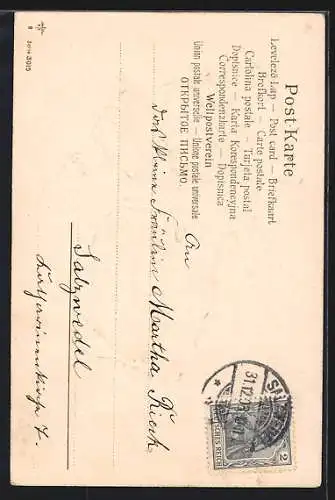 Post-Karte
Levelező Lap — Post card — Briefkaart
Brefkort — Carte postale
Cartolina postale — Tarjeta postal
Dopisnice — Karta Korespondencyjna
Correspondenzkarte — Dopisnica
Weltpostverein
Union postale universelle — Unione postale universale
ОТКРЫТОЕ ПИСЬМО.
An
das kleine Fräulein Martha Rieck
Salzwedel
7.
Serie 3905
8
SALZWEDEL
31.12.
DEUTSCHES REICH
2